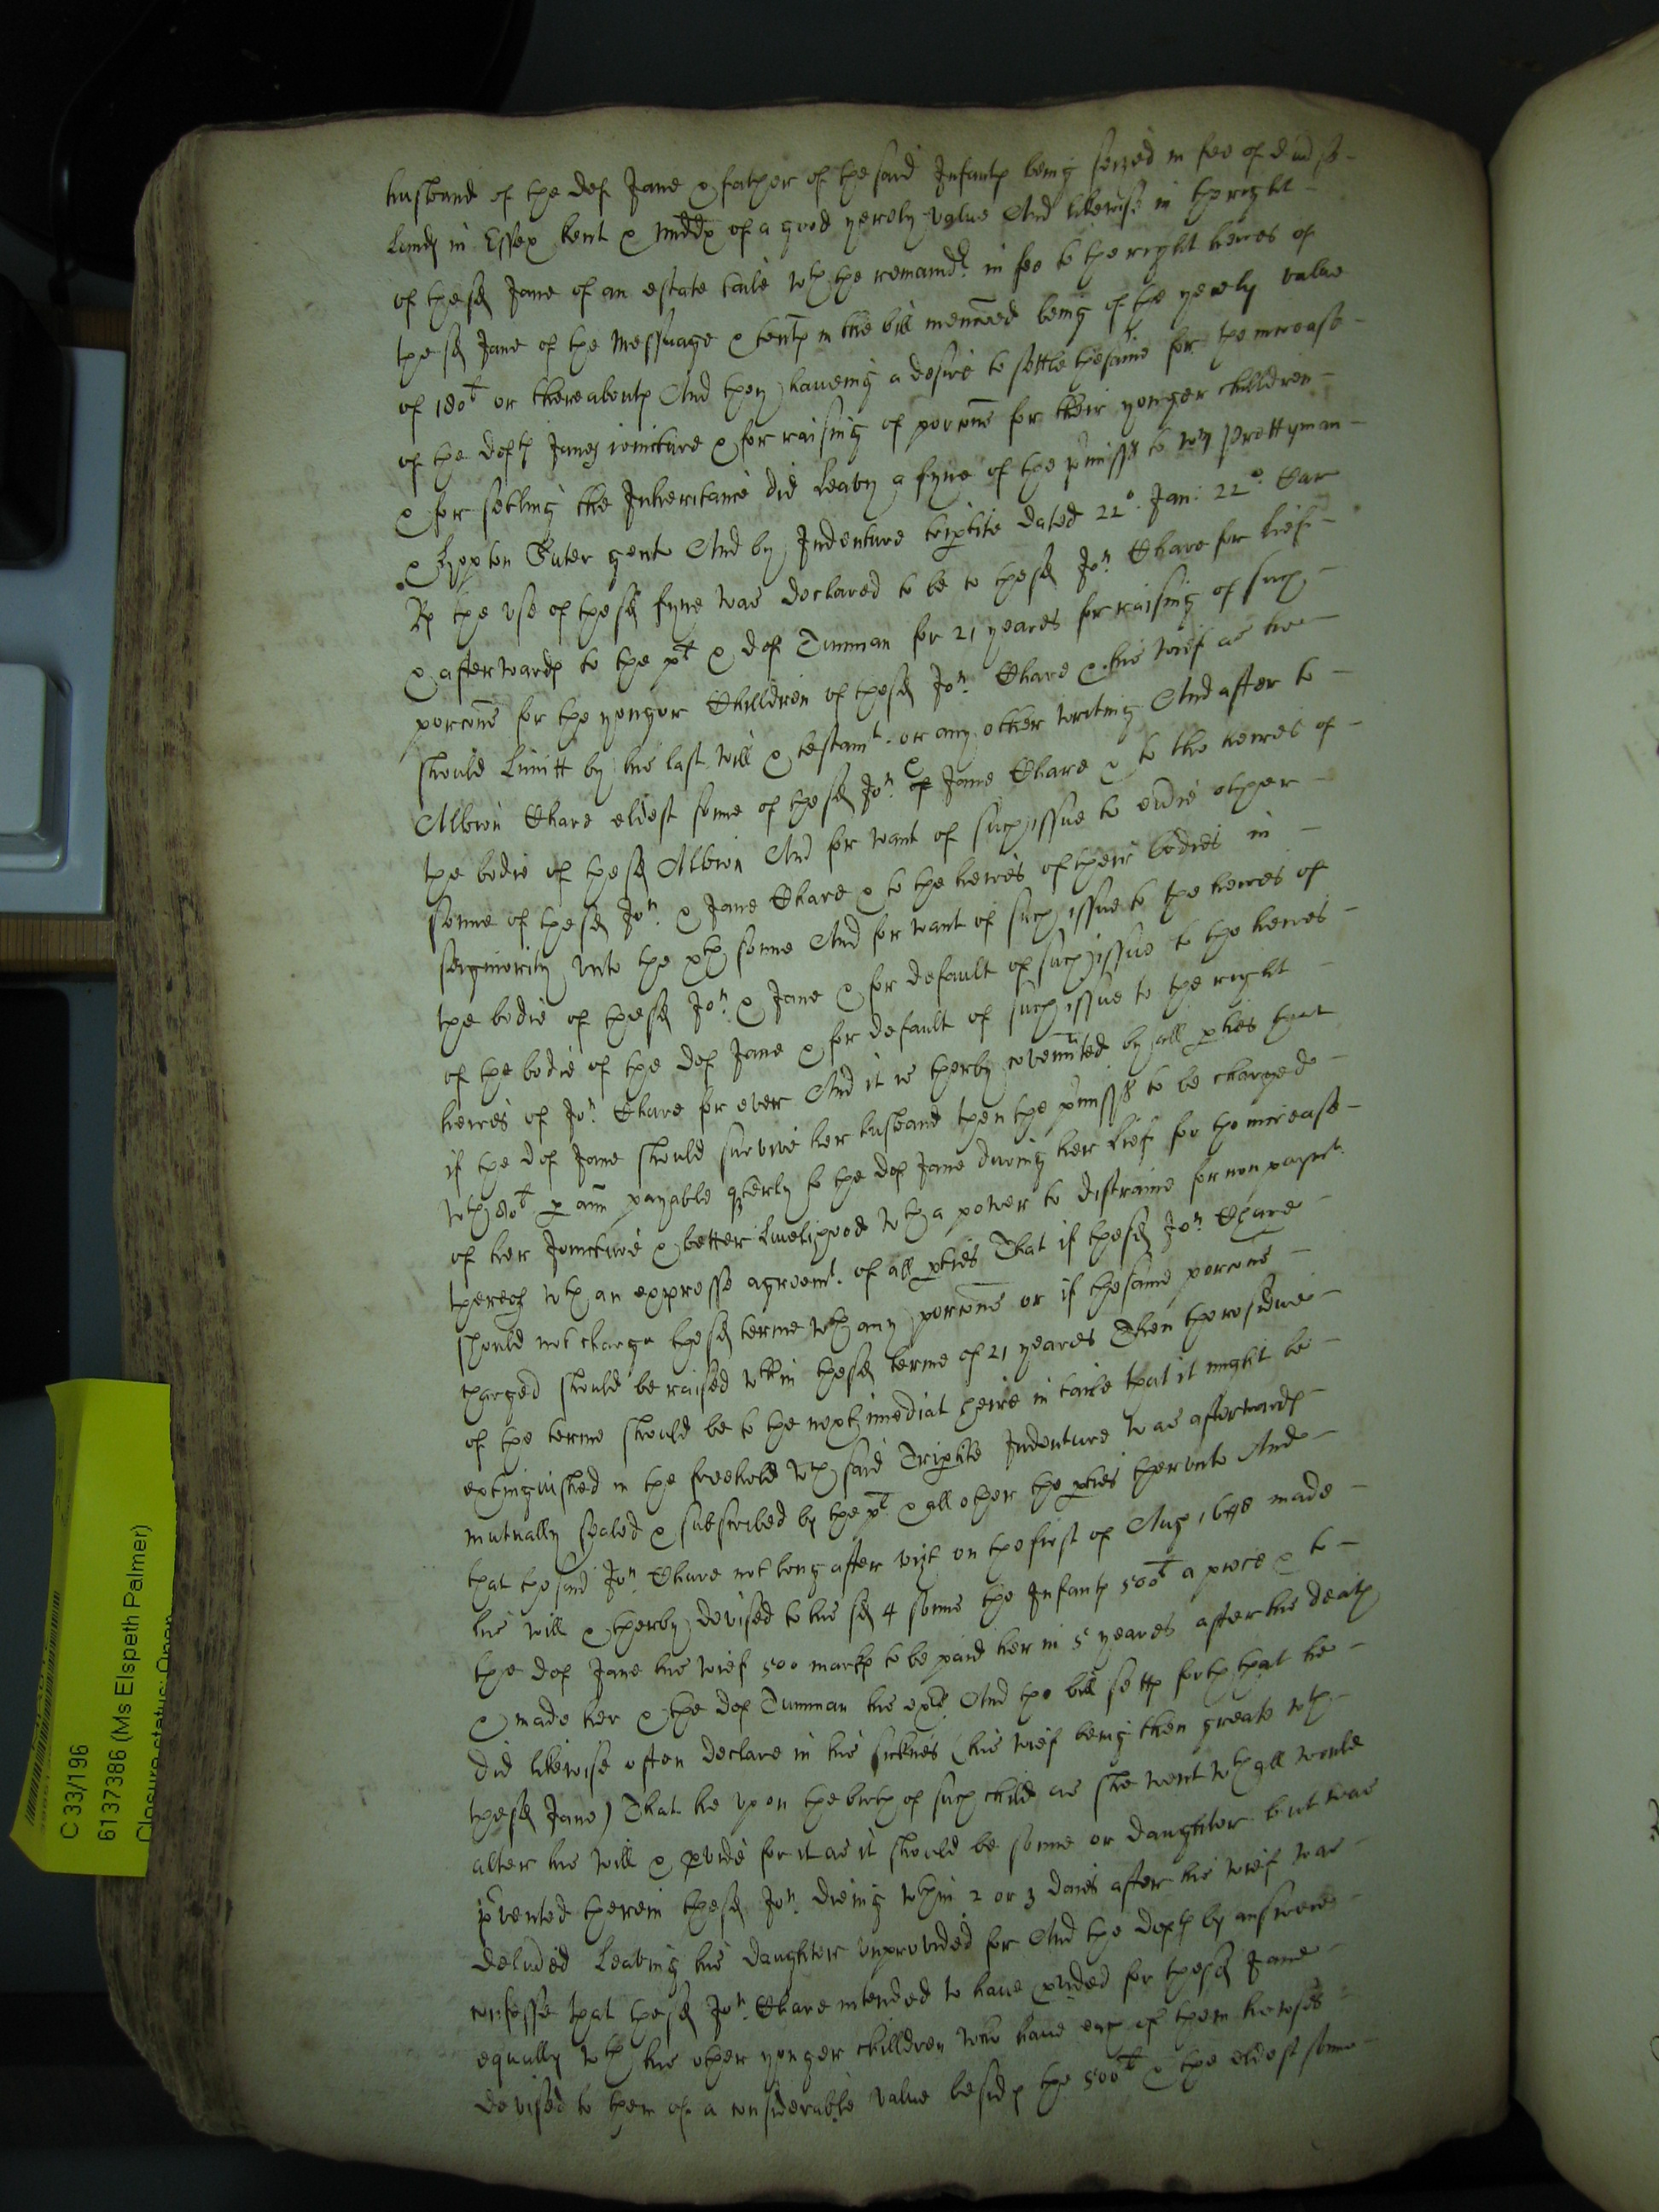 husband of the def Jane & father of the said Infants being seized in fee of divse
Lands in Essex kent & Midds of a good yerely value And likewise in the right
of the sd Jane of an estate taile wth the remaindr in fee to the right heires of
the sd Jane of the Messuage & tents in the bill menc̃oed being of the yerely value
of 180l or thereabouts And they haueing a desire to settle the same for the increase
of the defts Janes ioincture & for raising of porc̃ons for their yonger children
& for setling the Inheritance did Leavy a fyne of the pmisss to Wm Prettyman
& gent And by Indenture triptite dated 22o Jan: 22o Car
Rs the vse of the sd fyne was declared to be to the sd Jon Chare for Lief
& afterwards to the pt & def Tunman for 21 yeares for raising of such
porc̃ons for the yonger Children of the sd Jon Chare & his wief as hee
should Limitt by his last will & testamt or any other writing And after to
Albion Chare eldest sonne of the sd Jon & Jane Chare & to the heires of
the bodie of the sd Albion And for want of such issue to evrie other
sonne of the sd Jon & Jane Chare & to the heires of their bodies in
seigniority vnto the xth sonne And for want of such issue to the heires of
the bodie of the sd Jon & Jane & for default of such issue to the heires
of the bodie of the def Jane & for default of such issue to the right
heires of Jon Chare for ever And it is therby covennted by all pties that
if the def Jane should survive her husband then the pmisss to be charged
wth 80l p ann payable qterly to the def Jane during her Lief for the increase
of her Joincture & better Livelihood wth a power to distraine for non paymt
thereof wth an expresse agreemt of all pties That if the sd Jon Chare
should not charge the sd terme wth any porc̃ons or if the same porc̃ons
charged should be raised wthin the sd terme of 21 yeares Then the residue
of the terme should be to the next imediat heire in taile that it might be
extinguished in the freehold wth said Triptite Indenture was afterwards
mutually sealed & subscribed by the pt & all other the pties thervnto And
that the said Jon Chare not long after vizt on the first of Aug 1648 made
his will & therby devised to his sd 4 sonns the Infants 500l a peece & to
the def Jane his wief 500 marks to be paid her in 5 yeares after his death
& made her & the def Tunman his exrs And the bill setts forth that he
did likewise often declare in his sicknes (his wief being then greate wth
the sd Jane) That he vpon the birth of such child as she went wthall would
alter his will & pvide for it as it should be sonne or daughter but was
pvented therein the sd Jon dieing wthin 2 or 3 daies after his wief was
deliu̾ed Leaving his daughter vnprovided for And the defts by answere
confesse that the sd Jon Chare intended to haue pvided for the sd Jane
equally wth his other yonger children who haue each of them howses
devised to them of a considerable value besids the 500l & the eldest sonne
C 33/196
6137386 (Ms Elspeth Palmer)
Closure status: Open